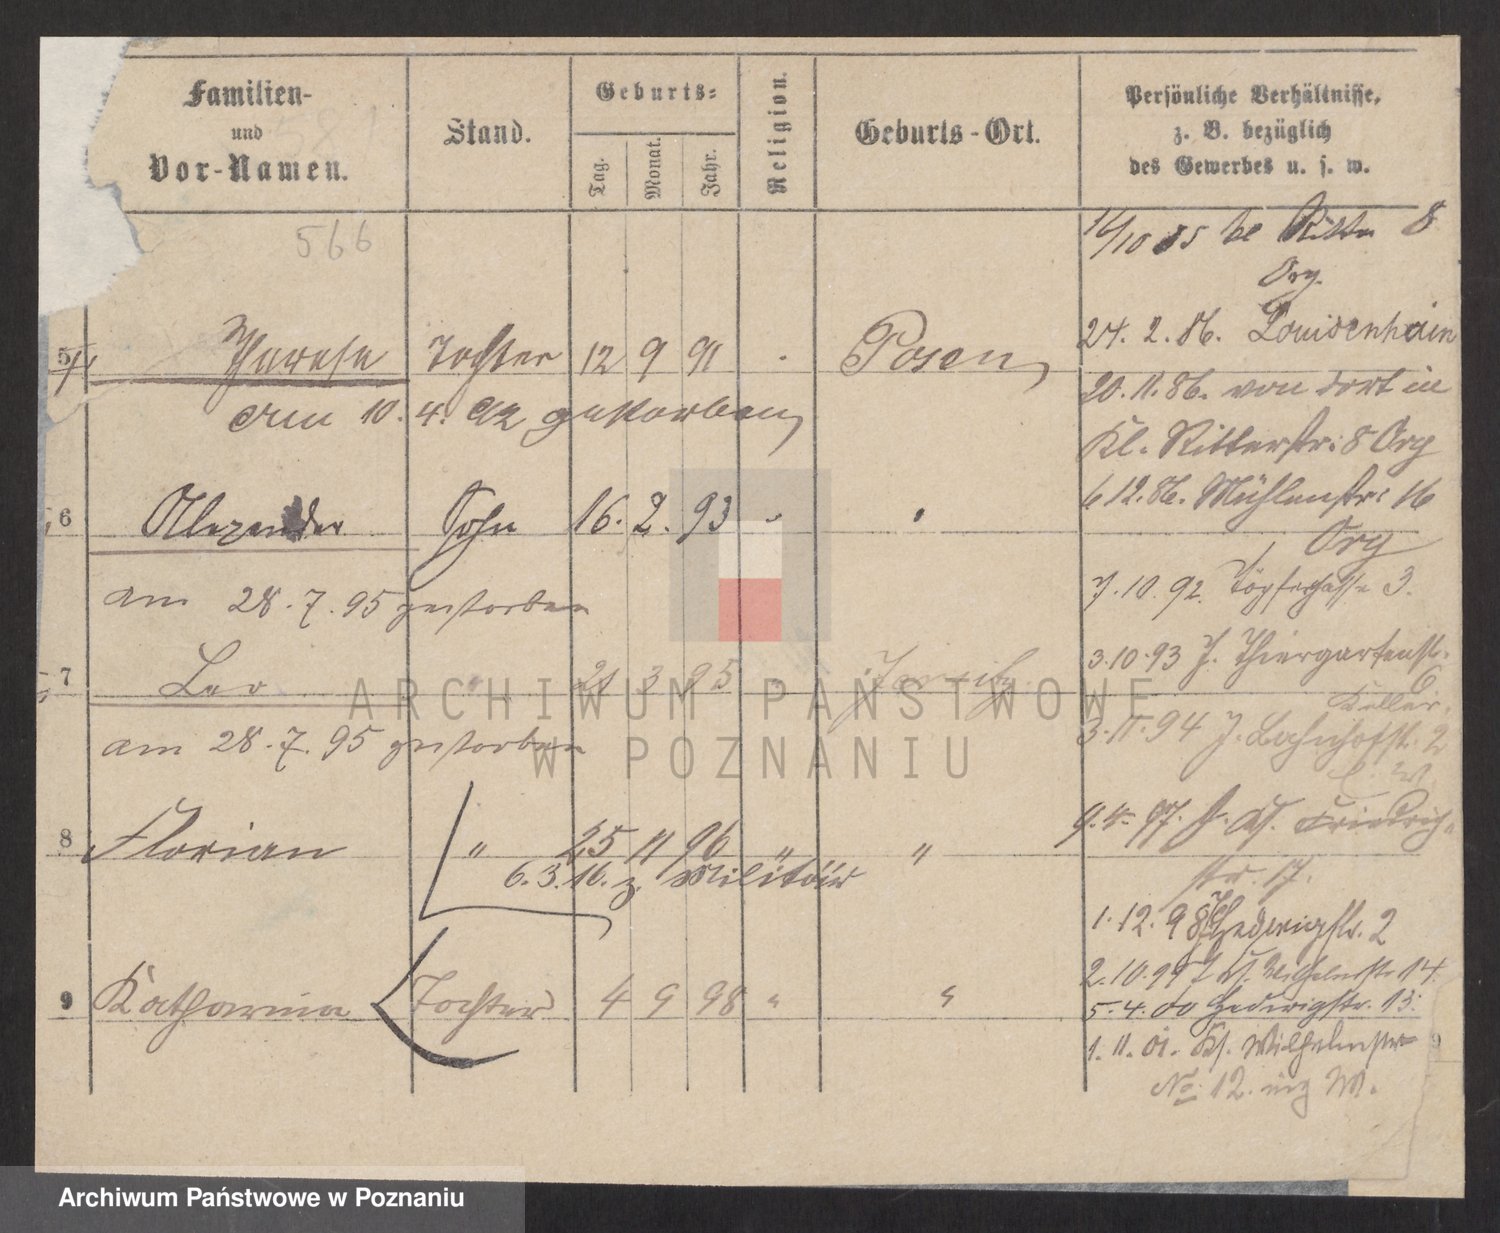 Familien-
und
Vor-Namen.
Stand.
Geburts-
Tag.
Monat.
Jahr.
Religion.
Geburts-Ort.
Persönliche Verhältnisse,
z. B. bezüglich
des Gewerbes u. s. w.
566
5 Therese Tochter 12 9 91 Posen
am 10. 4. 92 gestorben
6 Alexander Sohn 16. 2. 93
am 28. 7. 95 gestorben
7 Leo 21 3 95
am 28. 7. 95 gestorben
8 Florian " 25 11 96 " "
6. 3. 16. z. Militär
9 Katharina Tochter 4 9 98 " "
Ritter 8
Org.
24. 2. 86. Louisenhain
20. 11. 86. von dort in
Kl. Ritterstr. 8 Org
6 12. 86. Mühlenstr. 16
Org
7. 10. 92. Töpfergasse 3.
3. 10. 93 J. Thiergartenstr.
6
Keller.
3. 11. 94 J. Bahnhofstr. 2
9. 4. 97. Friedrich-
str. 17.
1. 12. 98 Hedwigstr. 2
2. 10. 99 Wilhelmstr 14.
5. 4. 00 Hedwigstr. 13.
1. 11. 01. Kl. Wilhelmstr
No. 12.
ARCHIWUM PAŃSTWOWE
W POZNANIU
Archiwum Państwowe w Poznaniu